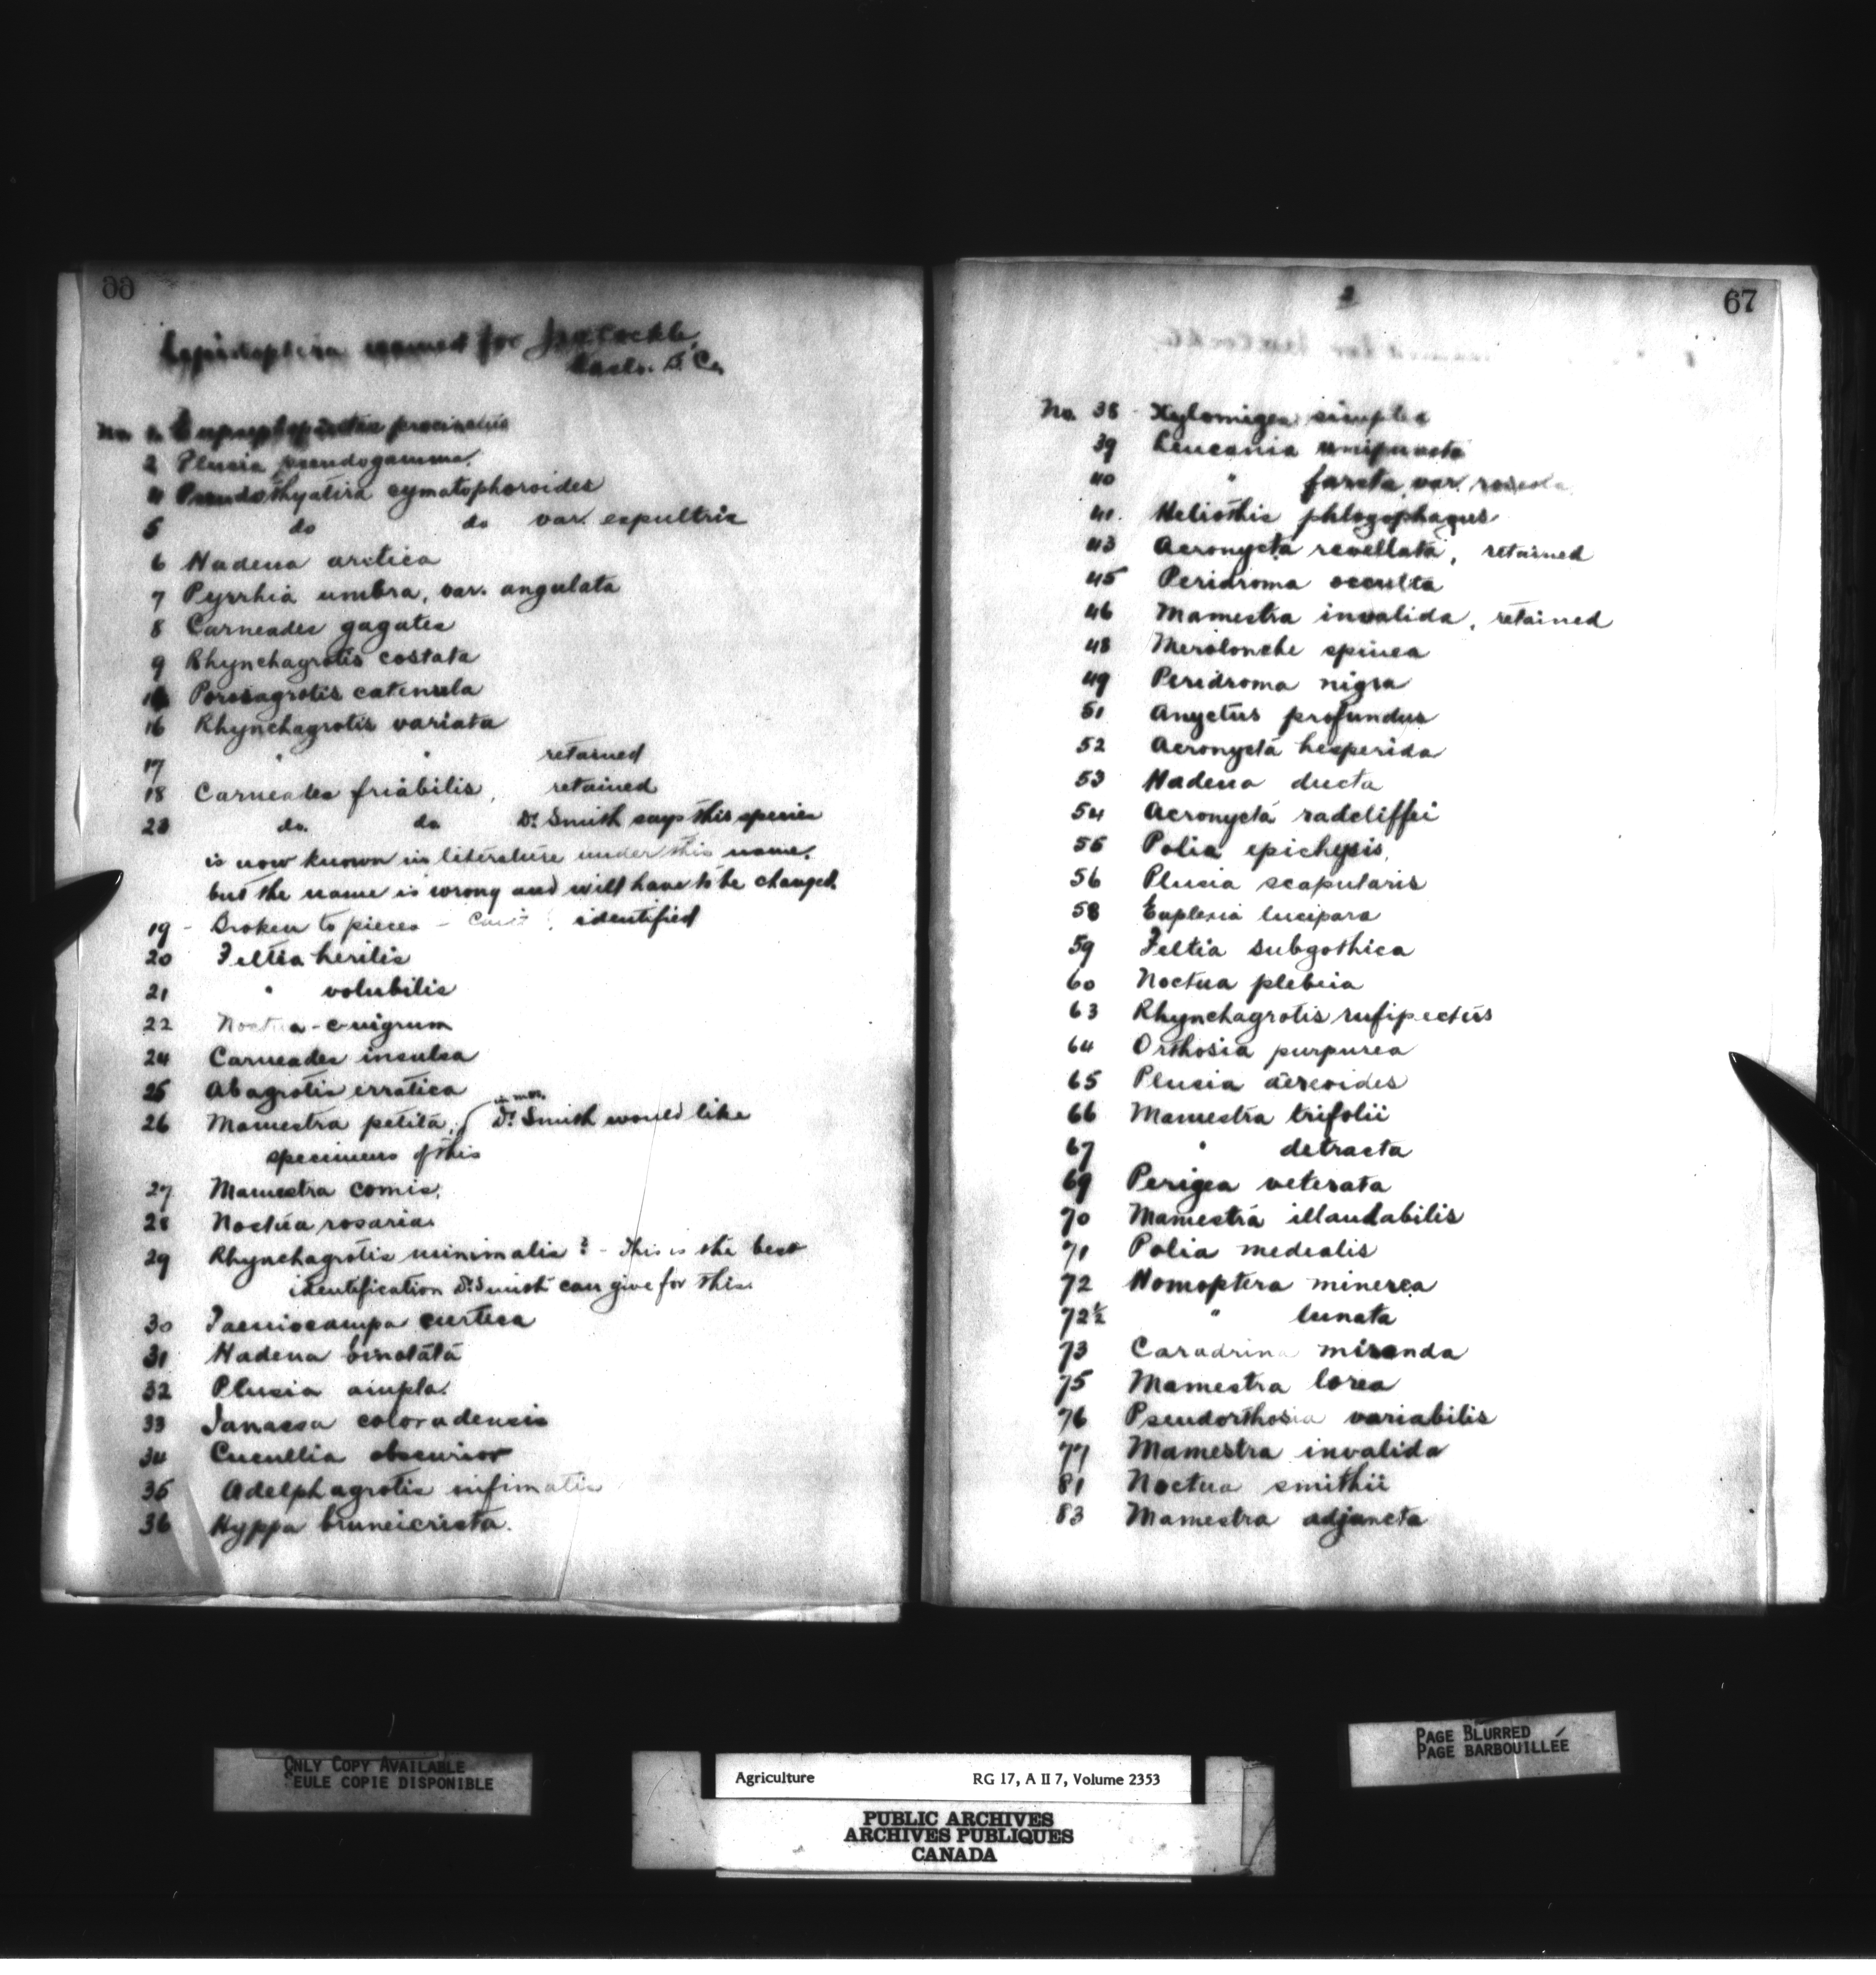 66
Lepidoptera named for J. W. Cockle,
Kaslo. B. C.
No 1. procinctus
2 Plusia pseudogamma.
4 Pseudothyatira cymatophoroides
5 do do var. expultrix
6 Hadena arctica
7 Pyrrhia umbra, var. angulata
8 Carneades gagates
9 Rhynchagrotis costata
Porosagrotis catenula
16 Rhynchagrotis variata
17 " " retained
18 Carneades friabilis, retained
23 do. do Dr. Smith says this species
is now known in literature under this name,
but the name is wrong and will have to be changed.
19 - Broken to pieces - identified
20 Feltia herilis
21 " volubilis
22 Noctua c-nigrum
24 Carneades insulsa
25 Abagrotis erratica
26 Mamestra petita, Dr. Smith would like
specimens of this
27 Mamestra comis,
28 Noctua rosaria.
29 Rhynchagrotis minimalis ? - This is the best
identification Dr. Smith can give for this.
30 Taeniocampa curtica
31 Hadena binotata
32 Plusia ampla.
33 Ianassa coloradensis
34 Cucullia obscurior
35 Adelphagrotis infimatis
36 Hyppa bruneicrista.
2
67
No. 38 - Xylomiges simplex
39 Leucania unipuncta
40 " farcta, var. roseola
41. Heliothis phlogophagus
43 Acronycta revellata, retained
45 Peridroma occulta
46 Mamestra invalida, retained
48 Merolonche spinea
49 Peridroma nigra
51 Anytus profundus
52 Acronycta hesperida
53 Hadena ducta
54 Acronycta radcliffei
55 Polia epichysis.
56 Plusia scapularis
58 Euplexia lucipara
59 Feltia subgothica
60 Noctua plebeia
63 Rhynchagrotis rufipectus
64 Orthosia purpurea
65 Plusia aereoides
66 Mamestra trifolii
67 " detracta
69 Perigea veterata
70 Mamestra illaudabilis
71 Polia medialis
72 Homoptera minerea
72½ " lunata
73 Caradrina miranda
75 Mamestra lorea
76 Pseudorthosia variabilis
77 Mamestra invalida
81 Noctua smithii
83 Mamestra adjuncta
ONLY COPY AVAILABLE
SEULE COPIE DISPONIBLE
Agriculture RG 17, A II 7, Volume 2353
PUBLIC ARCHIVES
ARCHIVES PUBLIQUES
CANADA
PAGE BLURRED
PAGE BARBOUILLÉE